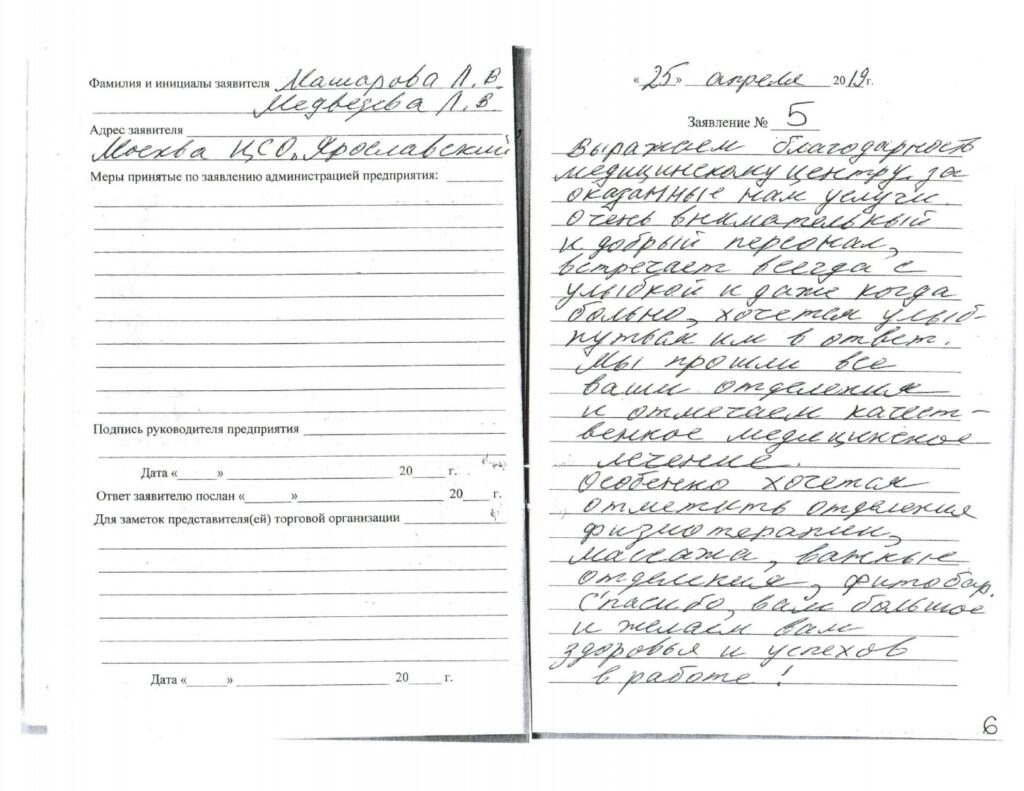 Фамилия и инициалы заявителя Машарова Л. В.
Медведева Л. В
Адрес заявителя
Москва ЦСО "Ярославский
Меры принятые по заявлению администрацией предприятия:
Подпись руководителя предприятия
Дата «______» 20____ г.
Ответ заявителю послан «______» 20____ г.
Для заметок представителя(ей) торговой организации
Дата «______» 20____ г.
«25» апреля 2019г.
Заявление № 5
Выражаем благодарность
медицинскому центру за
оказанные нам услуги.
Очень внимательный
и добрый персонал,
встречает всегда с
улыбкой и даже когда
больно, хочется улыб-
нуться им в ответ.
Мы прошли все
ваши отделения
и отмечаем качест-
венное медицинское
лечение.
Особенно хочется
отметить отделения
физиотерапии,
массажа, важные
отделения, фитобар.
Спасибо, вам большое
и желаем вам
здоровья и успехов
в работе!
6